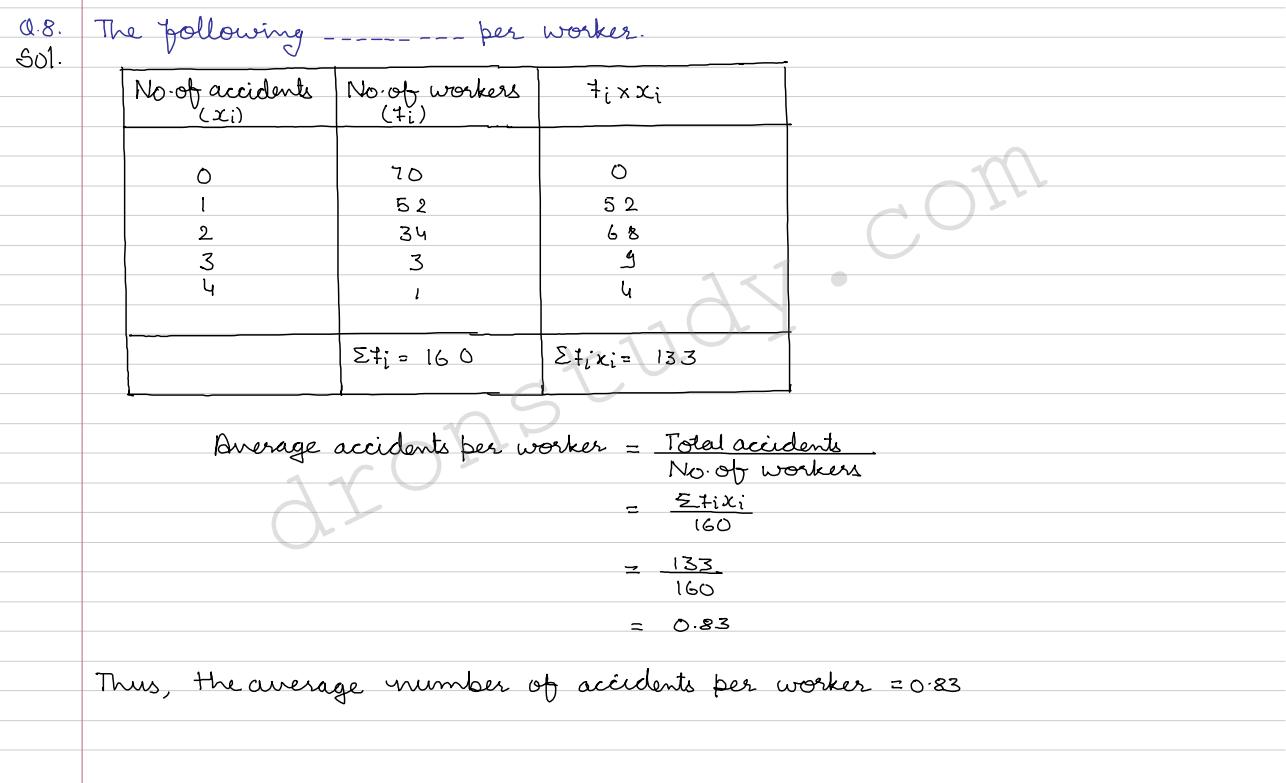 Q.8. The following --------- per worker.
Sol.
No. of accidents (xi) No. of workers (fi) fi × xi
0 70 0
1 52 52
2 34 68
3 3 9
4 1 4
Σfi = 160 Σfixi = 133
Average accidents per worker = Total accidents / No. of workers
= Σfixi / 160
= 133 / 160
= 0.83
Thus, the average number of accidents per worker = 0.83
dronstudy.com